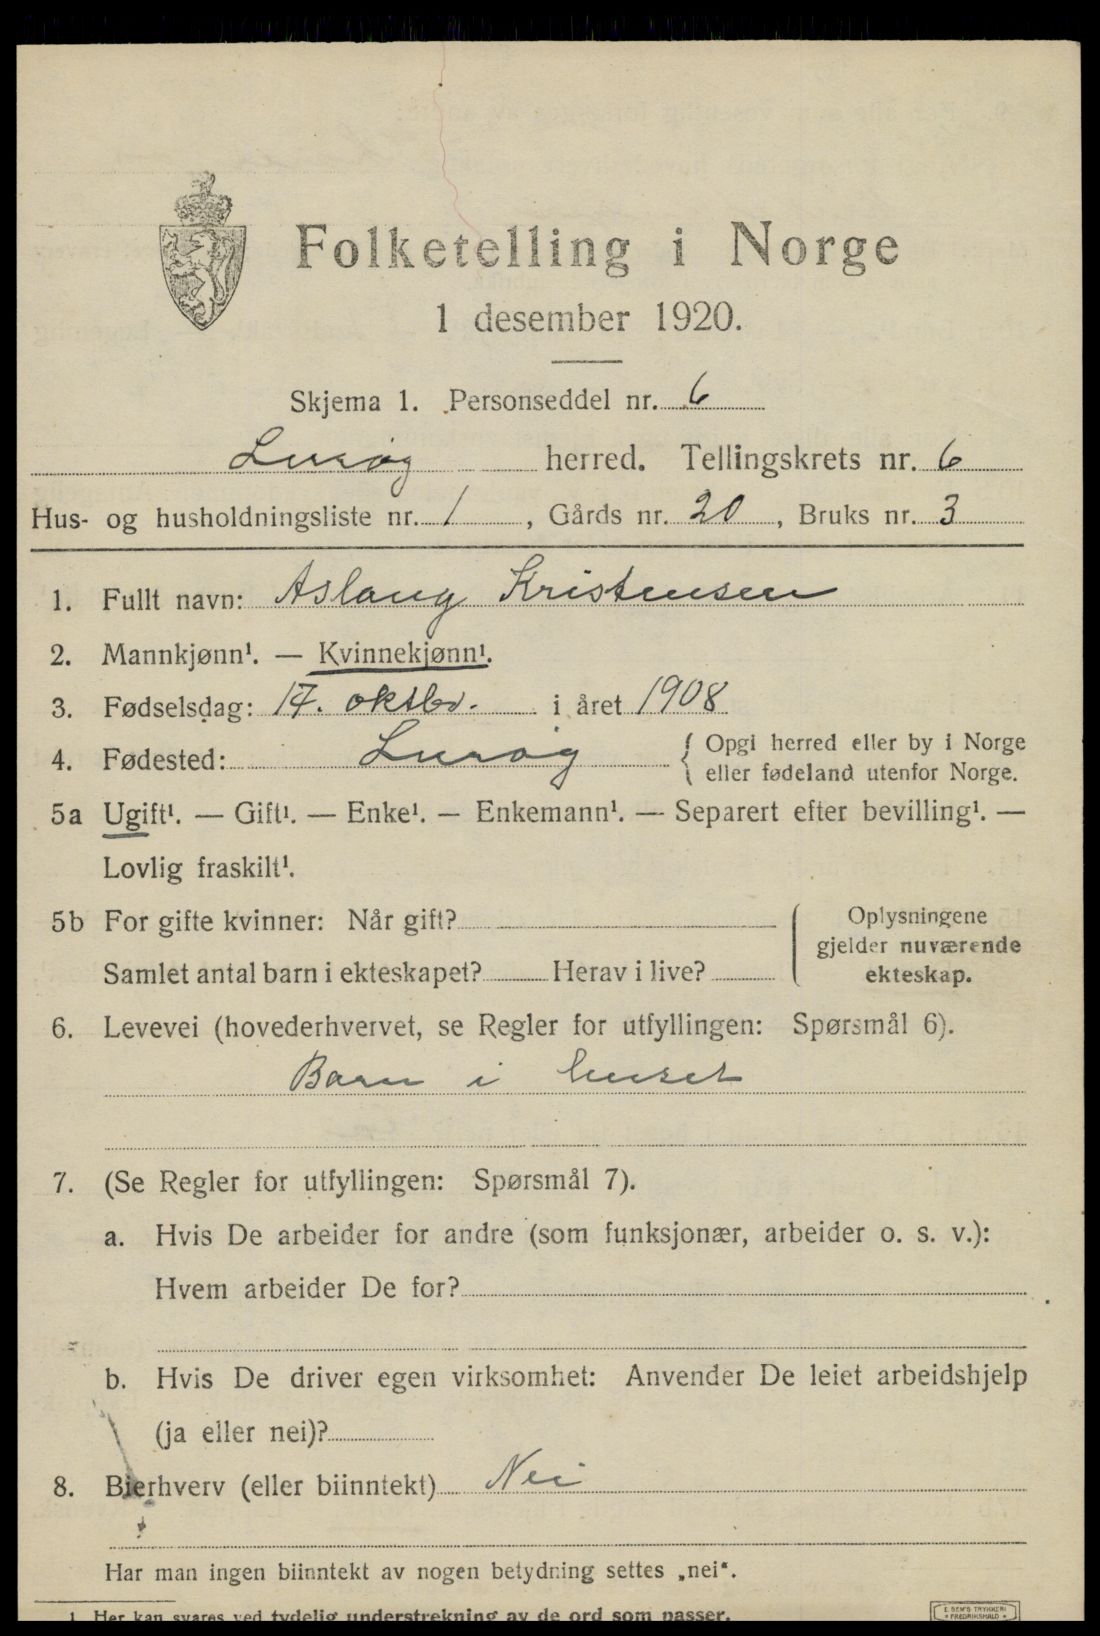 Folketelling i Norge
1 desember 1920.
Skjema 1. Personseddel nr. 6
Lurøy herred. Tellingskrets nr. 6
Hus- og husholdningsliste nr. 1, Gårds nr. 20, Bruks nr. 3
1. Fullt navn: Aslaug Kristensen
2. Mannkjønn¹. — Kvinnekjønn¹.
3. Fødselsdag: 17. oktbr. i året 1908
4. Fødested: Lurøy { Opgi herred eller by i Norge
eller fødeland utenfor Norge.
5a Ugift¹. — Gift¹. — Enke¹. — Enkemann¹. — Separert efter bevilling¹. —
Lovlig fraskilt¹.
5b For gifte kvinner: Når gift?
Samlet antal barn i ekteskapet? Herav i live?
Oplysningene
gjelder nuværende
ekteskap.
6. Levevei (hovederhvervet, se Regler for utfyllingen: Spørsmål 6).
Barn i huset
7. (Se Regler for utfyllingen: Spørsmål 7).
a. Hvis De arbeider for andre (som funksjonær, arbeider o. s. v.):
Hvem arbeider De for?
b. Hvis De driver egen virksomhet: Anvender De leiet arbeidshjelp
(ja eller nei)?
8. Bierhverv (eller biinntekt) Nei
Har man ingen biinntekt av nogen betydning settes „nei“.
1 Her kan svares ved tydelig understrekning av de ord som passer.
E. SEM'S TRYKKERI
FREDRIKSHALD